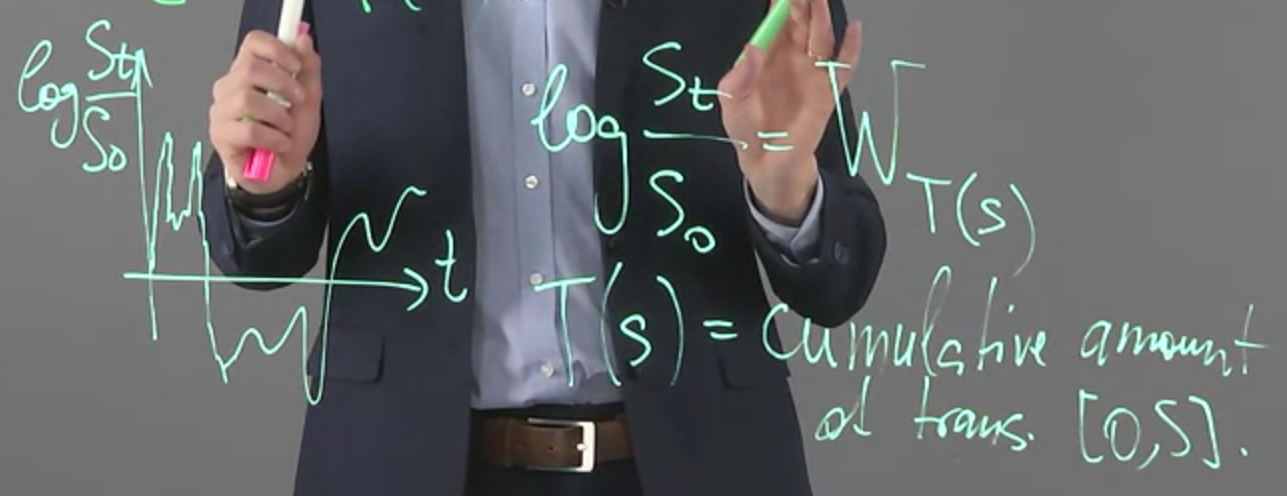 log St/S0
t
log St/S0 = W_T(s)
T(s) = Cumulative amount
of trans. [0,S].